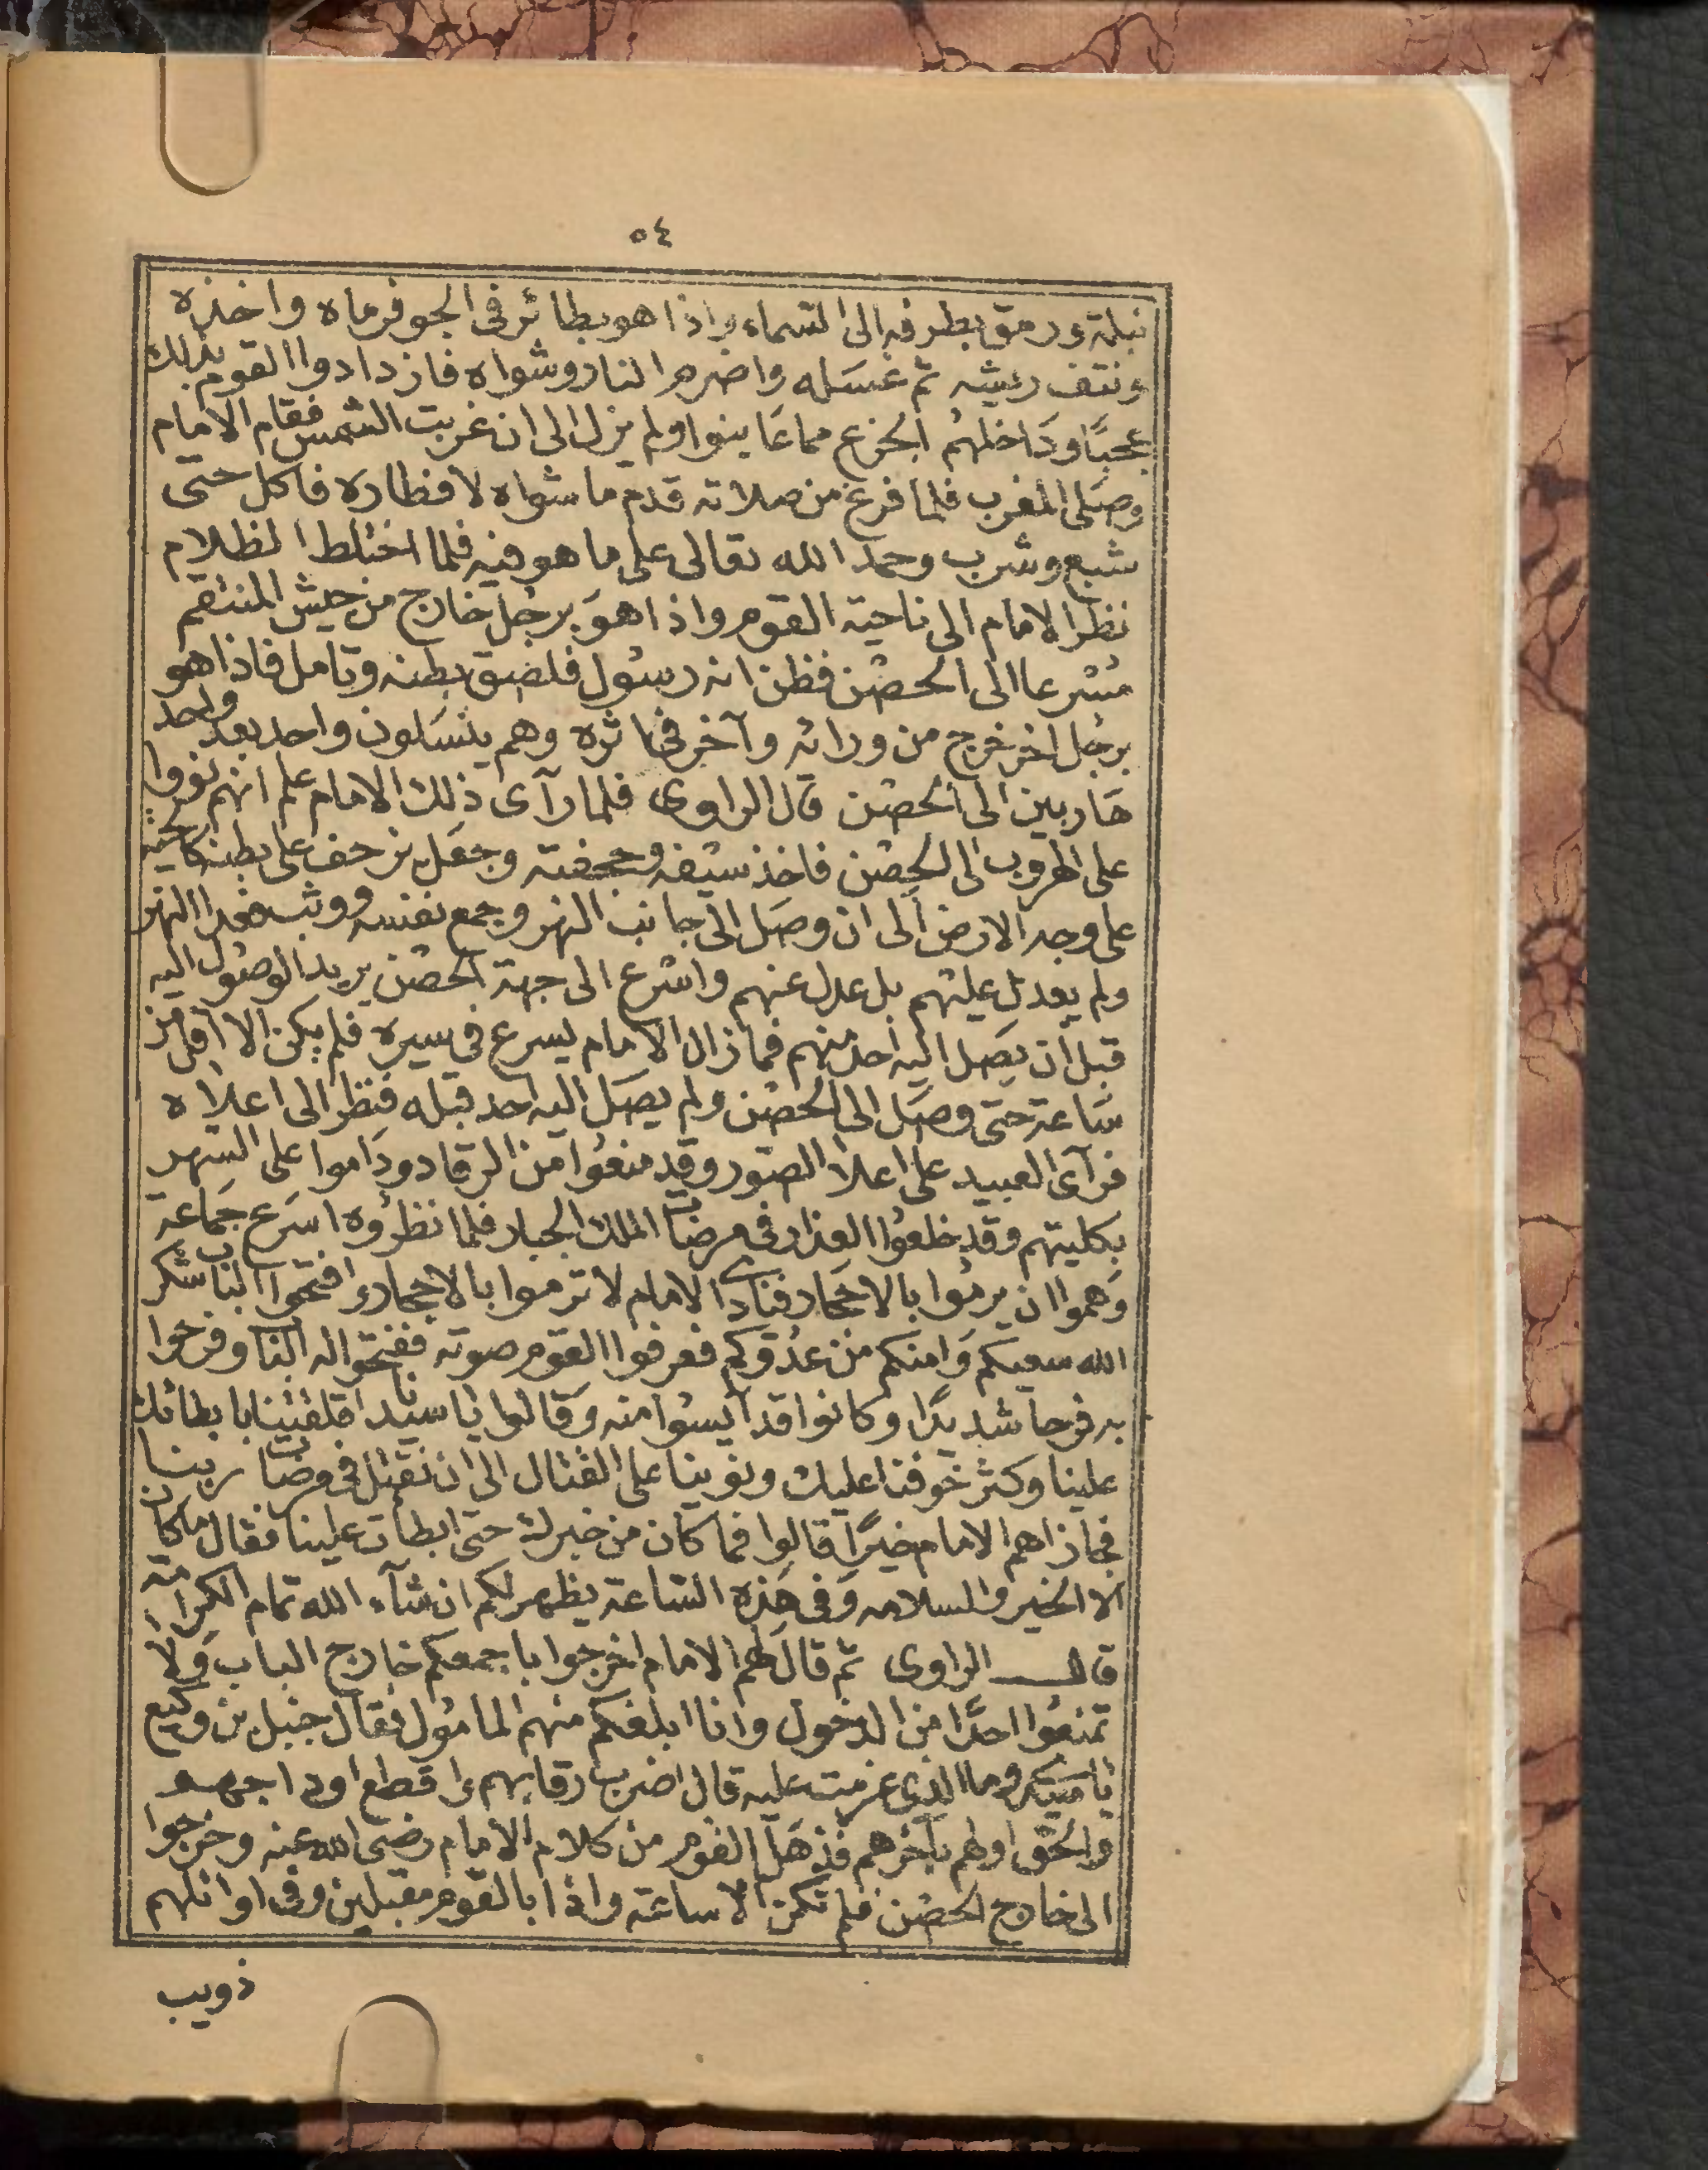 ٥٤
نبلة ورمق بطرفه الى السماء واذا هو بطائر فى الجو فرماه واخذه
ونتف ريشه ثم غسله واضرم النار وشواه فازدادوا القوم بذلك
عجبًا وداخلهم الجزع مما عاينوا ولم يزل الى ان غربت الشمس فقام الامام
وصلى المغرب فلما فرغ من صلاته قدم ما شواه لافطاره فاكل حتى
شبع وشرب وحمد الله تعالى على ما هو فيه فلما اختلط الظلام
نظر الامام الى ناحية القوم واذا هو برجل خارج من جيش المنتقم
مسرعا الى الحصن فظن انه رسول فلصق بطنه وتامل فاذا هو
برجل اخر خرج من ورائه وآخر فى اثره وهم ينسلون واحد بعد واحد
هاربين الى الحصن قال الراوى فلما رآى ذلك الامام علم انهم
على الهروب الى الحصن فاخذ سيفه وحجفته وجعل يزحف على بطنه كالحية
على وجه الارض الى ان وصل الى جانب النهر وجمع نفسه ووثب فعدا النهر
ولم يعدل عليهم بل عدل عنهم واسرع الى جهة الحصن يريد الوصول اليه
قبل ان يصل اليه احد منهم فما زال الامام يسرع فى سيره فلم يكن الا اقل من
ساعة حتى وصل الى الحصن ولم يصل اليه احد قبله فنظر الى اعلاه
فرآى العبيد على اعلا الصور وقد منعوا من الرقاد وداموا على السهر
بكليتهم وقد خلعوا العذار فى مرضات الملك الجبار فلما نظروه اسرع جماعة
وهموا ان يرموا بالاحجار فنادى الامام لا ترموا بالاحجار وافتحوا الباب شكر
الله سعيكم وامنكم من عدوكم فعرفوا القوم صوته ففتحوا له الباب وفرحوا
به فرحا شديدًا وكانوا قد آيسوا منه وقالوا يا سيدنا قلقينا بابطائك
علينا وكثر خوفنا عليك ونوينا على القتال الى ان نقتل فى مرضات ربنا
فجازاهم الامام خيرًا قالوا فما كان من خبرك حتى ابطأت علينا فقال ما كان
الا الخير والسلامه وفى هذه الساعة يظهر لكم ان شآء الله تمام الكرامة
قال الراوى ثم قال لهم الامام اخرجوا باجمعكم خارج الباب ولا
تمنعوا احدًا من الدخول وانا ابلغكم منهم المامول فقال جنبل بن وكيع
يا سيدى وما الذى عزمت عليه قال اضرب رقابهم واقطع اوداجهم
والحق اولهم بآخرهم فذهل القوم من كلام الامام رضى الله عنه وخرجوا
الى خارج الحصن فلم تكن الا ساعة واذا بالقوم مقبلين وفى اوائلهم
ذويب